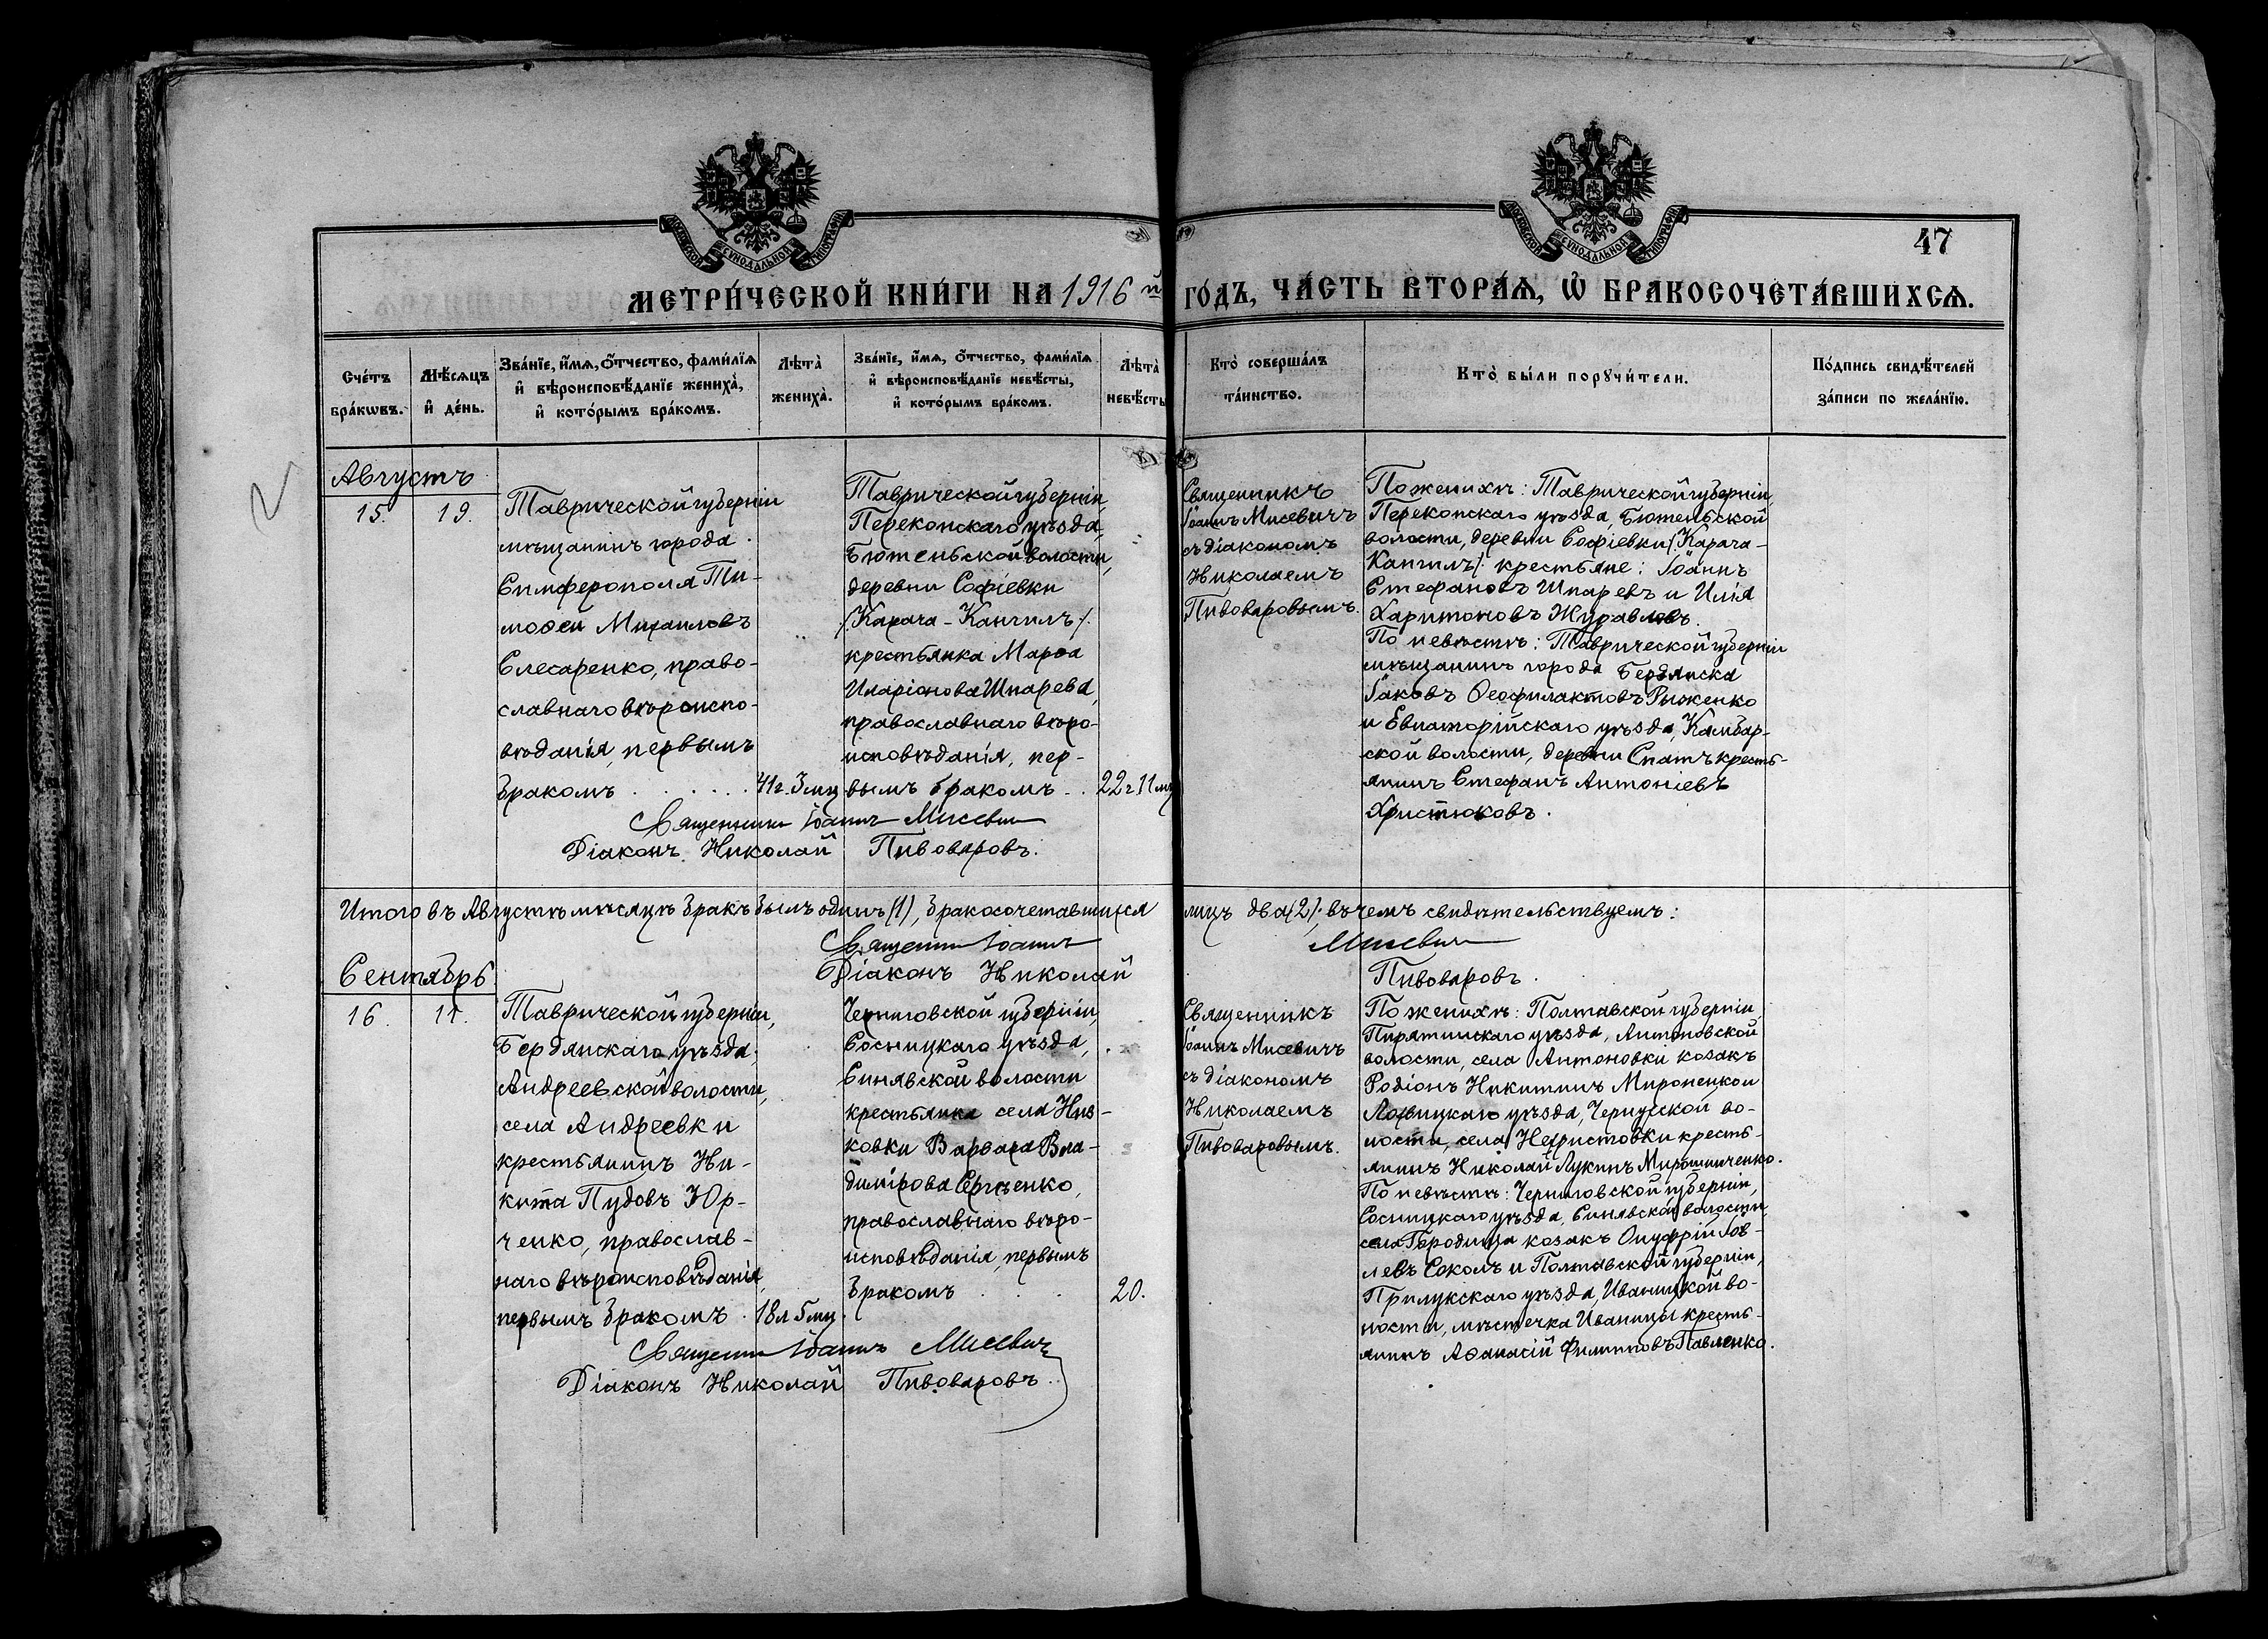 МОСКОВСКОЙ СУНОДАЛЬНОЙ ТИПОГРАФІИ
МОСКОВСКОЙ СУНОДАЛЬНОЙ ТИПОГРАФІИ
47
МЕТРИ́ЧЕСКОЙ КНИ́ГИ НА 1916й ГО́ДЪ, ЧА́СТЬ ВТОРА́Ѧ, Ѽ БРАКОСОЧЕТА́ВШИХСѦ.
Сче́тъ
бра́кѡвъ.
Мѣ́сѧцъ
и҆ де́нь.
Зва́нїе, и҆́мѧ, ѻ҆́тчество, фами́лїѧ
и҆ вѣроисповѣ́данїе жениха̀,
и҆ кото́рымъ бра́комъ.
Лѣ́та̀
жениха̀.
Зва́нїе, и҆́мѧ, ѻ҆́тчество, фами́лїѧ
и҆ вѣроисповѣ́данїе невѣ́сты,
и҆ кото́рымъ бра́комъ.
Лѣ́та̀
невѣ́сты
Кто̀ соверша́лъ
та́инство.
Кто̀ бы́ли порꙋчи́тели.
По́дпись свидѣ́телей
за́писи по жела́нїю.
Августъ
15.
19.
Таврической губерніи
мѣщанинъ города
Симферополя Ти-
моѳей Михаиловъ
Слесаренко, право-
славнаго вѣроиспо-
вѣданія, первымъ
бракомъ
41г. 3 мц
Таврической губерніи,
Перекопскаго уѣзда,
Бютеньской волости,
деревни Софіевки
/Карача-Кангилъ/.
крестьянка Марѳа
Иларіонова Шпарева,
православнаго вѣро-
исповѣданія, пер-
вымъ бракомъ
22 г. 11 мц
Священникъ
Іоаннъ Мисевичъ
съ діакономъ
Николаемъ
Пивоваровымъ.
По женихѣ: Таврической губерніи,
Перекопскаго уѣзда, Бютеньской
волости, деревни Софіевки /.Карача-
Кангилъ/. крестьяне: Іоаннъ
Стефановъ Шпаревъ и Илія
Харитоновъ Журавловъ.
По невѣстѣ: Таврической губерніи
мѣщанинъ города Бердянска
Іаковъ Ѳеофилактовъ Рыженко
и Евпаторійскаго уѣзда, Камбар-
ской волости, деревни Спатъ кресть-
янинъ Стефанъ Антоніевъ
Христюковъ.
Священникъ Іоаннъ Мисевичъ
Діаконъ Николай Пивоваровъ.
Итого въ Августѣ мѣсяцѣ бракъ былъ одинъ (1), бракосочетавшихся лицъ два (2), въ чемъ свидѣтельствуемъ:
Священникъ Іоаннъ Мисевичъ
Діаконъ Николай Пивоваровъ.
Сентябрь
16.
11.
Таврической губерніи,
Бердянскаго уѣзда,
Андреевской волости,
села Андреевки
крестьянинъ Ни-
кита Пудовъ Юр-
ченко, православ-
наго вѣроисповѣданія,
первымъ бракомъ.
18 л 5 мц.
Черниговской губерніи,
Сосницкаго уѣзда,
Синявской волости
крестьянка села Низ-
ковки Варвара Вла-
димірова Сергѣенко,
православнаго вѣро-
исповѣданія, первымъ
бракомъ
20.
Священникъ
Іоаннъ Мисевичъ
съ діакономъ
Николаемъ
Пивоваровымъ.
По женихѣ: Полтавской губерніи,
Пирятинскаго уѣзда, Антоновской
волости, села Антоновки козакъ
Родіонъ Никитинъ Мироненко и
Лохвицкаго уѣзда, Чернусской во-
лости, села Нехристовки кресть-
янинъ Николай Лукинъ Мирошниченко.
По невѣстѣ: Черниговской губерніи,
Сосницкаго уѣзда, Синявской волости,
села Городища козакъ Онуфрій Іов-
левъ Соколъ и Полтавской губерніи,
Прилукскаго уѣзда, Иваницкой во-
лости, мѣстечка Иваницы кресть-
янинъ Аѳанасій Филипповъ Павленко.
Священникъ Іоаннъ Мисевичъ
Діаконъ Николай Пивоваровъ.